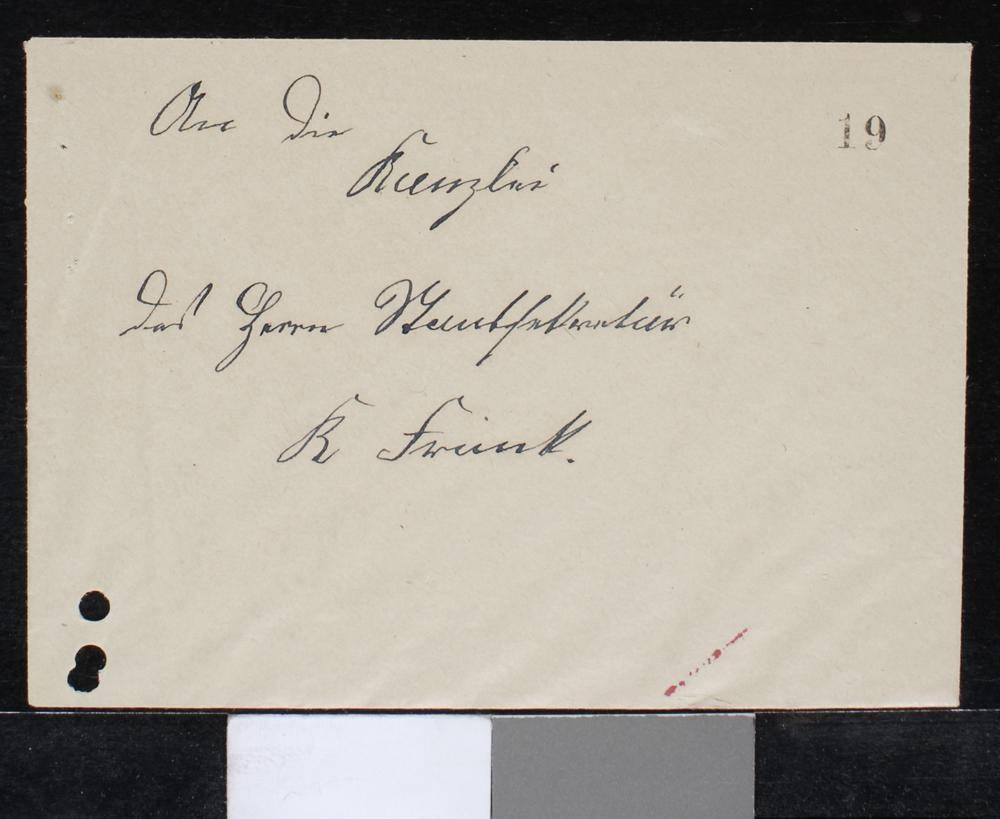 An die
19
Kanzlei
des Herrn Staatssekretär
K Frank.